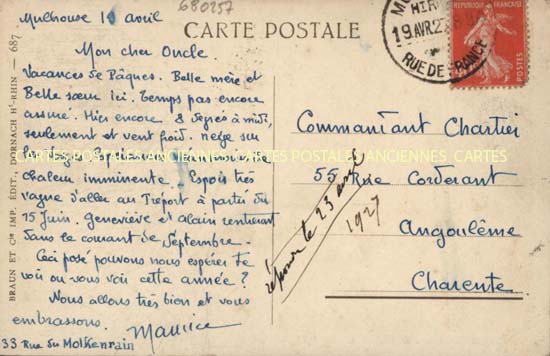 680257
Mulhouse 19 avril
CARTE POSTALE
19 AVR. 27
RUE DE FRANCE
REPUBLIQUE FRANÇAISE
POSTES
Mon cher Oncle.
Vacances de Pâques. Belle mère et
Belle sœur ici. Temps pas encore
assuré. Hier encore 8 degrés à midi,
seulement et vent froid. neige sur
chaleur imminente. Espoir très
vague d'aller au Tréport à partir du
15 Juin. Geneviève et Alain rentreront
dans le courant de Septembre.
Ceci posé pouvons nous espérer te
voir ou vous voir cette année?
Nous allons très bien et vous
embrassons. Maurice
33 Rue du Molkenrain
BRAUN ET Cie IMP. ÉDIT., DORNACH Ht-RHIN. — 687
CARTES POSTALES ANCIENNES CARTES POSTALES ANCIENNES CARTES
Commandant Chartier
55 Rue Corderant
Angoulême
Charente
répondre le 23 avril
1927